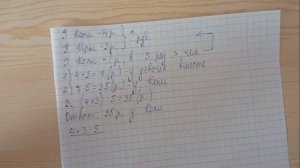 У Кати - 4 р.
У Веры - 3 р. ? руб.
У Коли - ? (р.) в 5 раз > чем
1) 4+3=7(р.) - у девочек вместе
2) 7·5=35(р.) - у Коли
(4+3)·5=35(р.)
Ответ: 35 р. у Коли
4+3·5